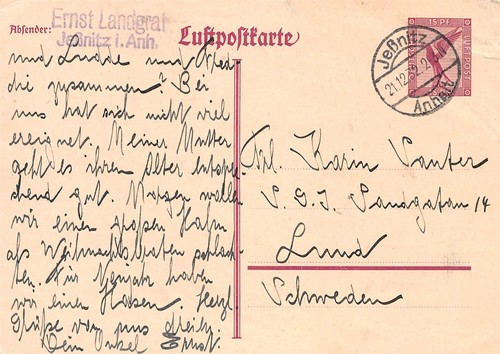 Absender:
Ernst Landgraf
Jeßnitz i. Anh.
Luftpostkarte
15 PF
LUFTPOST
Jeßnitz
21.12.
Anhalt
und
die zusammen? Bei
uns hat sich nicht viel
ereignet. Meiner Mutter
geht es ihrem Alter entspre-
chend gut. Morgen wollen
wir einen großen Hahn
als Weihnachtsbraten schlach-
ten. Für Neujahr haben
wir einen Hasen. Herzl.
Grüße von uns dreien.
Dein Onkel Ernst.
Frl. Karin
Sandgatan 14
Lund
Schweden